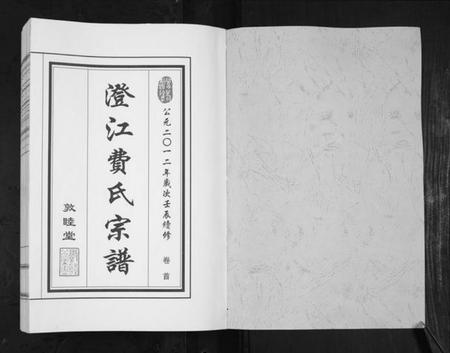 公元二〇一二年歲次壬辰續修 卷首
澄江費氏宗譜
敦睦堂